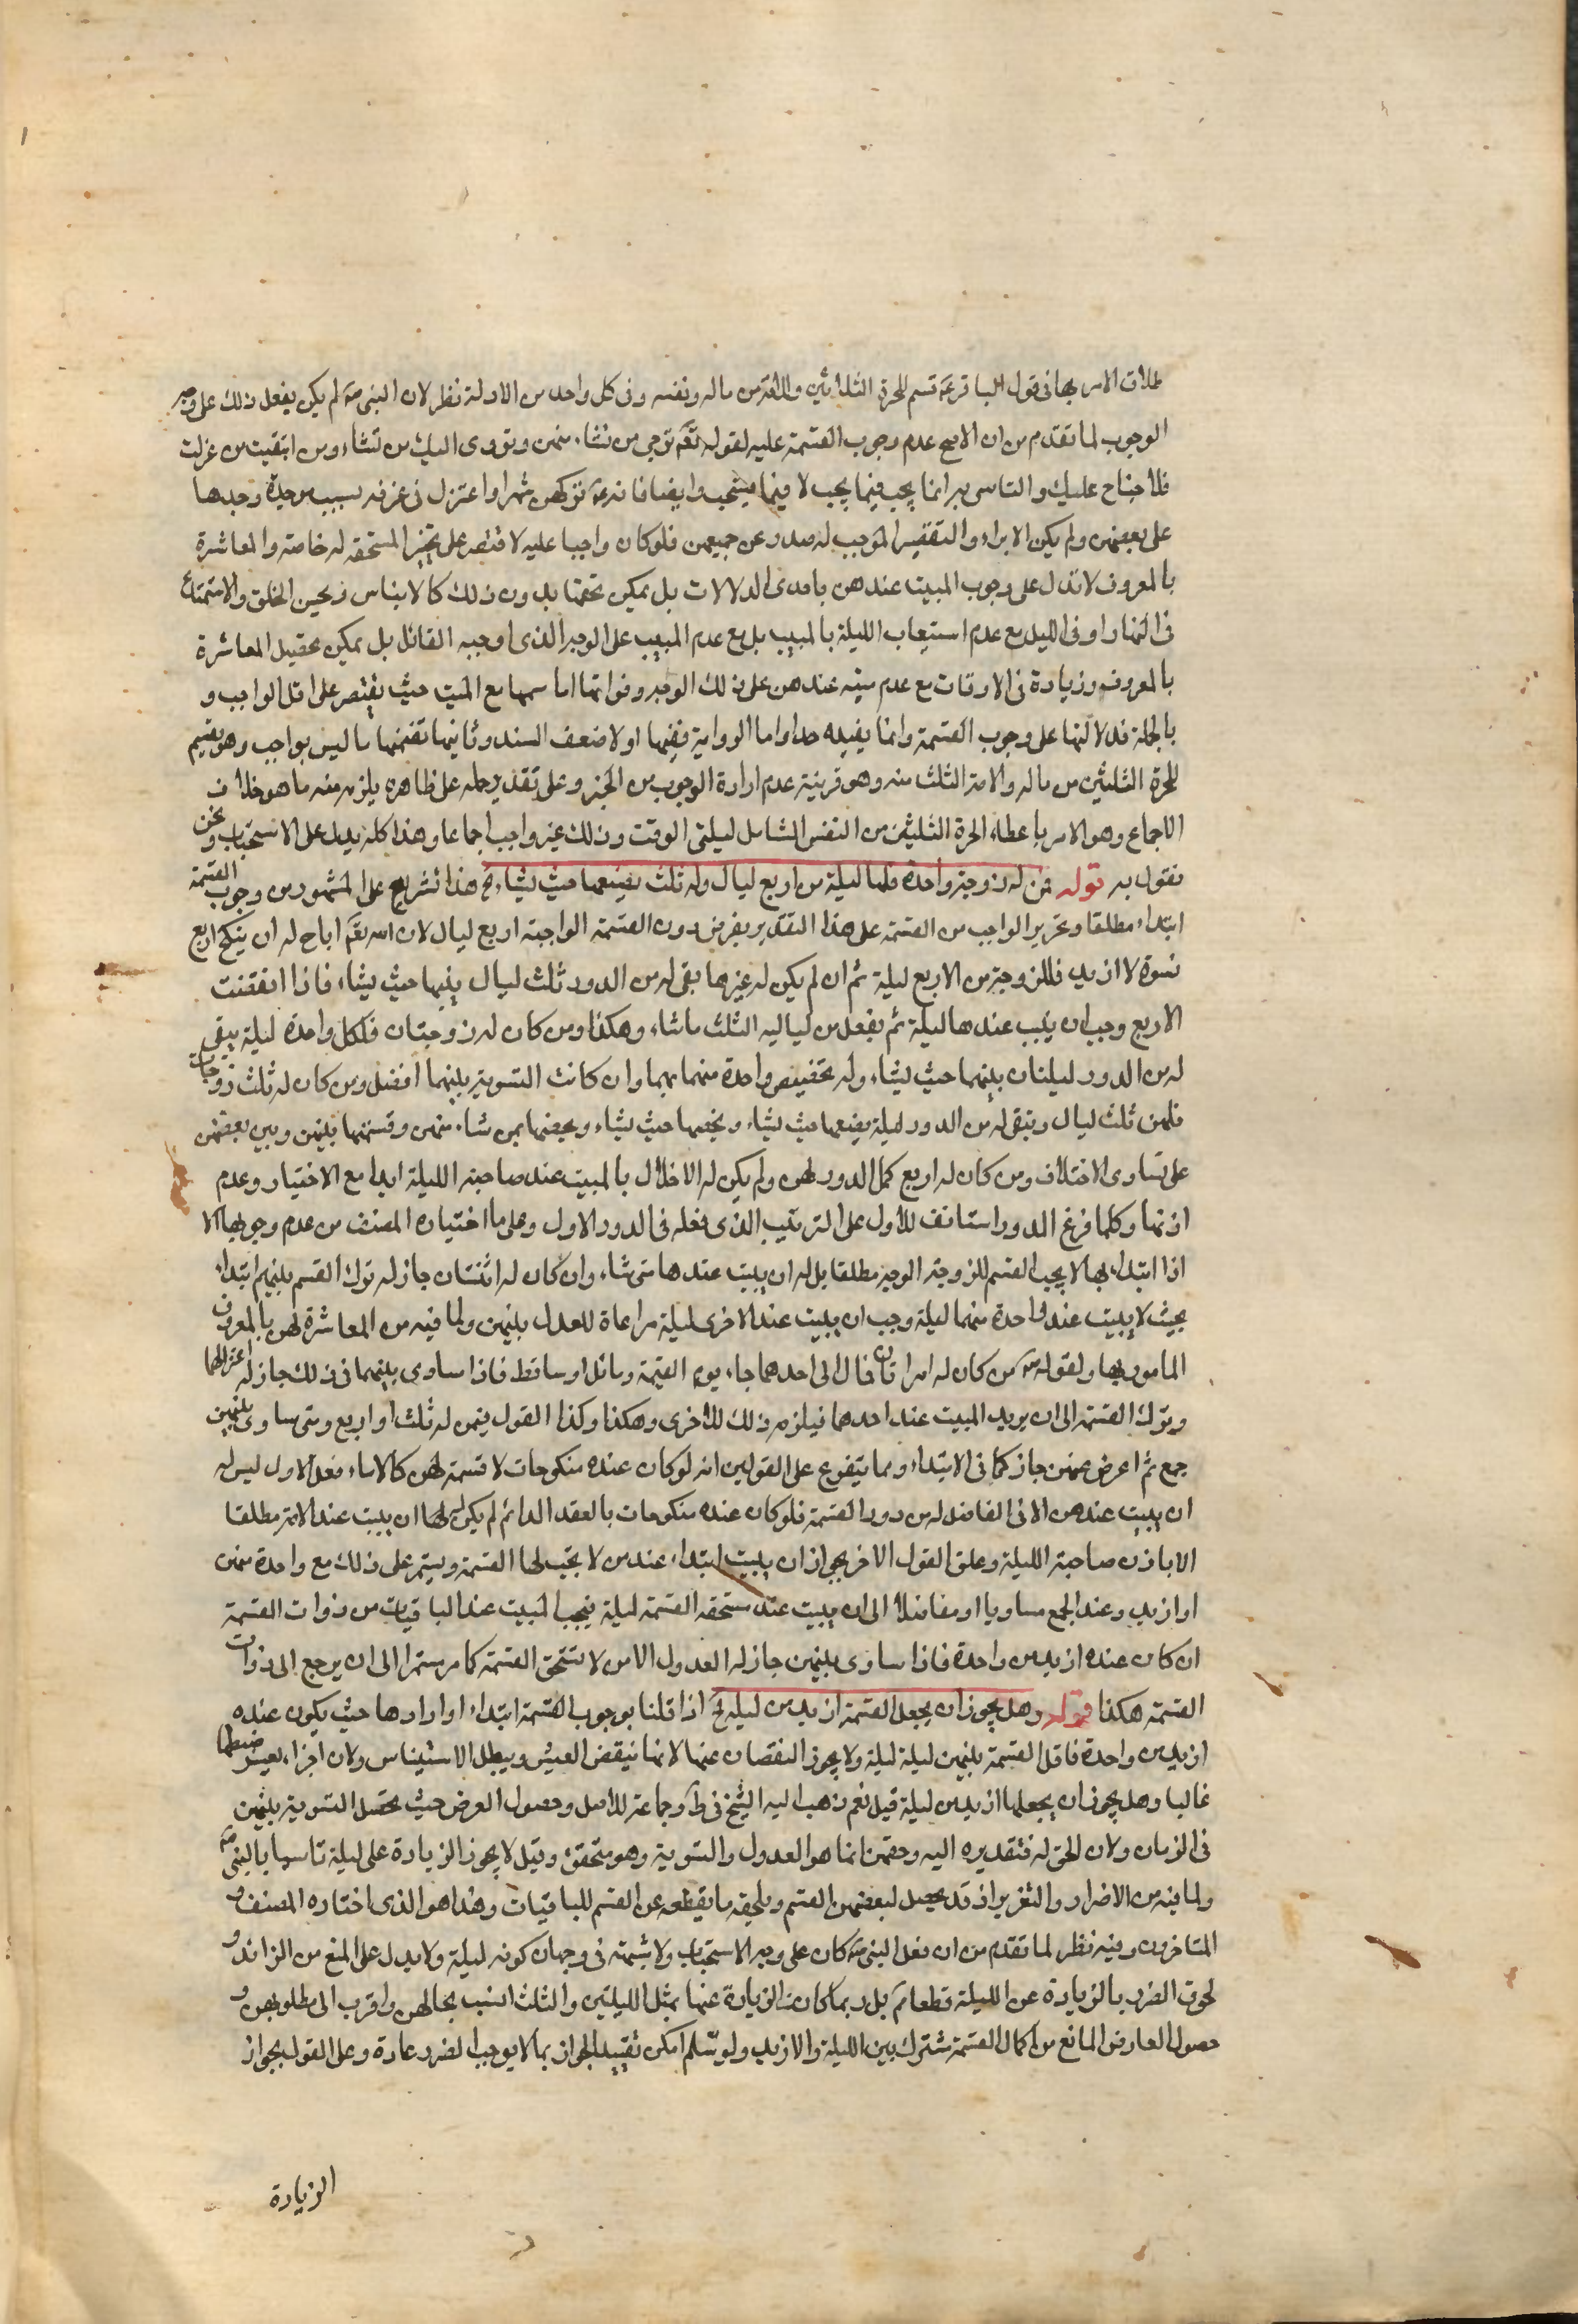 طلاق الامر بها فى قول الباقر عه قسم للحرة الثلاثين والامة من ماله ونفسه وفى كل واحد من الادلة نظر لان النبى صه لم يكن يفعل ذلك على وجه
الوجوب لما تقدم من ان الاصح عدم وجوب القسمة عليه لقوله تعم ترجى من تشاء منهن وتؤوى اليك من تشاء ومن ابتغيت ممن عزلت
فلا جناح عليك والتاسى به انما يجب فيما يجب لا فيما يستحب وايضا فانه عه تركهن شهرا واعتزل فى غرفه بسبب موجدة وجدها
على بعضهن ولم يكن الايراء والتقصير الموجب له صدر عن جميعهن فلو كان واجبا عليه لاقتصر على المستحقه له خاصة والمعاشرة
بالمعروف لا تدل على وجوب المبيت عندهن باحدى الدلالات بل يمكن تحققها بدون ذلك كالايناس وتحسن الخلق والاستمتاع
فى النهار او فى الليل مع عدم استيعاب الليلة بالمبيت بل مع عدم المبيت على الوجه الذى اوجبه القائل بل يمكن تحصيل المعاشرة
بالمعروف وزيادة فى الاوقات مع عدم مبيته عندهن على ذلك الوجه وفواتها مع المبيت حيث يقتصر على اقل الواجب و
بالجملة فدلالتها على وجوب القسمة وانما يفيده جدا واما الرواية ففيها اولا ضعف السند وثانيها تضمنها ما ليس بواجب وهو تقسيم
للحرة الثلثين من ماله والامة الثلث منه وهو قرينة عدم ارادة الوجوب من الخبر وعلى تقدير حمله على ظاهره يلزم منه ما هو خلاف
الاجماع وهو الامر باعطاء الحرة الثلثين من النفس الشامل ليلتى الوقت وذلك غير واجب اجماعا وهذا كله يدل على الاستحباب ونحن
نقول به قوله من له زوجة واحدة فلها ليلة من اربع ليال وله ثلث يضيعها حيث يشاء الخ هذا تفريع على المشهور من وجوب القسمة
ابتداء مطلقا وتحرير الواجب من القسمة على هذا التقدير يفرض دون القسمة الواجبة اربع ليال لان الله تعم اباح له ان ينكح اربع
نسوة لا ازيد فللزوجة من الاربع ليلة ثم ان لم يكن له غيرها بقى له من الدور ثلث ليال يبيتها حيث يشاء فاذا انقضت
الاربع وجب ان يبيت عندها ليلة ثم يفعل من لياليه الثلث ما شاء وهكذا ومن كان له زوجتان فلكل واحدة ليلة يبقى
له من الدور ليلتان يبيتهما حيث يشاء وله تخصيص واحدة منهما بهما وان كانت التسوية بينهما افضل ومن كان له ثلث زوجات
فلهن ثلث ليال وتبقى له من الدور ليلة يضيعها حيث يشاء ويخصها حيث يشاء ويخصها بمن شاء منهن وقسمتها بينهن وبين بعضهن
على تساوى الاختلاف ومن كان له اربع كمل الدور لهن ولم يكن له الاخلال بالمبيت عند صاحبة الليلة ابدا مع الاختيار وعدم
اذنها وكلما فرغ الدور استانف للاول على الترتيب الذى فعله فى الدور الاول وعلى ما اختاره المصنف من عدم وجوبها الا
اذا ابتدا بها لا يجب القسم للزوجة الوحيدة مطلقا بل له ان يبيت عندها متى شاء وان كان له اثنتان جاز له ترك القسم بينهم ابتداء
بحيث لا يبيت عند واحدة منهما ليلة وجب ان يبيت عند الاخرى ليلة مراعاة للعدل بينهن ولما فيه من المعاشرة لهن بالمعروف
المامور بها ولقوله صه من كان له امراتان فمال الى احدهما جاء يوم القيمة ومائل او ساقط فاذا ساوى بينهما فى ذلك جاز له اعتزالهما
وترك القسمة الى ان يريد المبيت عند احدهما فيلزمه ذلك للاخرى وهكذا وكذا القول فيمن له ثلث او اربع ومتى ساوى بينهن
جمع ثم اعرض عنهن جاز كما فى الابتداء ومما يتفرع على القولين انه لو كان عنده منكوحات لا قسمة لهن كالاماء فعلى الاول ليس له
ان يبيت عندهن الا فى الفاضل له من دور القسمة فلو كان عنده منكوحات بالعقد الدائم لم يكن لها ان يبيت عند الامة مطلقا
الا باذن صاحبة الليلة وعلى القول الاخر يجوز ان يبيت ابتداء عند من لا يجب لها القسمة ويستمر على ذلك مع واحدة منهن
او ازيد وعند الجمع مساويا او مفاضلا الى ان يبيت عند مستحقة القسمة ليلة فيجب المبيت عند الباقيات من ذوات القسمة
ان كان عنده ازيد من واحدة فاذا ساوى بينهن جاز له العدول الا من لا تستحق القسمة كما مر مستمرا الى ان يرجع الى ذوات
القسمة هكذا قوله وهل يجوز ان يجعل القسمة ازيد من ليلة الخ اذا قلنا بوجوب القسمة ابتداء او ارادها حيث يكون عنده
ازيد من واحدة فاقل القسمة بينهن ليلة ليلة ولا يجوز النقصان عنها لانها تنقص العيش ويبطل الاستيناس ولان اجزاء يعسر ضبطها
غالبا وهل يجوز ان يجعلها ازيد من ليلة قيل نعم ذهب اليه الشيخ فى ط وجماعة للاصل وحصول الغرض حيث تحصل التسوية بينهن
فى الزمان ولان الحق له فتقديره اليه وحقهن انما هو العدول والتسوية وهو متحقق وقيل لا يجوز الزيادة على ليلة تاسيا بالنبى صه
ولما فيه من الاضرار والتغرير اذ قد يحصل لبعضهن القسم ويلحقه ما يقطعه عن القسم للباقيات وهذا هو الذى اختاره المصنف و
المتاخرون وفيه نظر لما تقدم من ان فعل النبى صه كان على وجه الاستحباب ولا شبهة فى رجحان كونه ليلة ولا يدل على المنع من الزائد و
لحوق الضرر بالزيادة عن الليلة قطعا ثم بل ربما كان الزيادة عنها بمثل الليلتين والثلث انسب بحالهن واقرب الى مطلوبهن و
حصول العارض المانع من اكمال القسمة مشترك بين الليلة والازيد ولو سلم امكن تقييد الجواز بما لا يوجب الضرر عادة وعلى القول بجواز
الزيادة